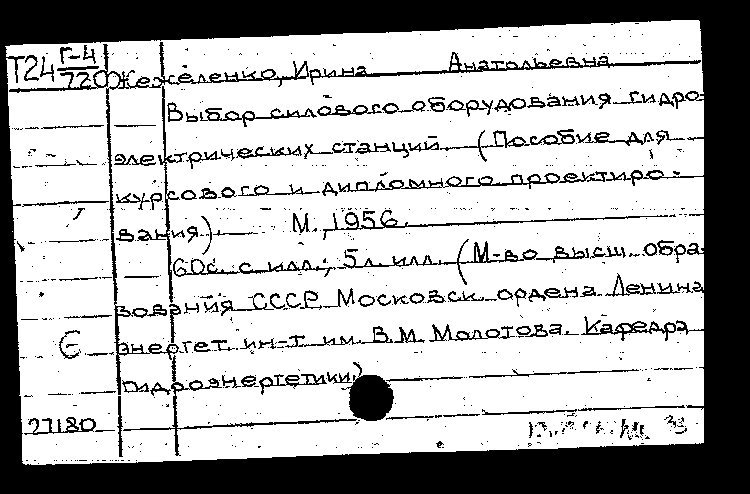 Т24 Г-4
720 Жежеленко, Ирина Анатольевна
Выбор силового оборудования гидро-
электрических станций. (Пособие для
курсового и дипломного проектиро-
вания). М., 1956.
60с. с илл.; 5л. илл. (М-во высш. обра-
зования СССР. Московск. ордена Ленина
Є энергет. ин-т им. В.М. Молотова. Кафедра
гидроэнергетики)
27180